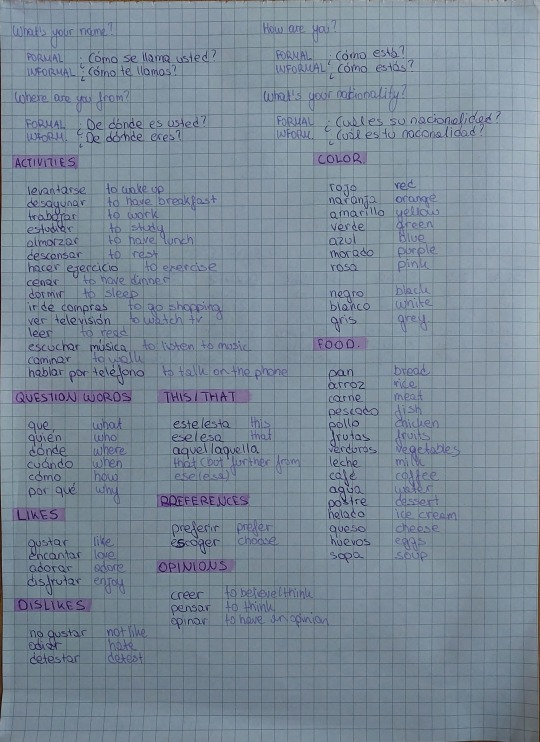 What's your name?
FORMAL ¿Cómo se llama usted?
INFORMAL ¿Cómo te llamas?
How are you?
FORMAL ¿Cómo está?
INFORMAL ¿Cómo estás?
Where are you from?
FORMAL ¿De dónde es usted?
INFORM. ¿De dónde eres?
What's your nationality?
FORMAL ¿Cuál es su nacionalidad?
INFORM. ¿Cuál es tu nacionalidad?
ACTIVITIES
levantarse to wake up
desayunar to have breakfast
trabajar to work
estudiar to study
almorzar to have lunch
descansar to rest
hacer ejercicio to exercise
cenar to have dinner
dormir to sleep
ir de compras to go shopping
ver televisión to watch tv
leer to read
escuchar música to listen to music
caminar to walk
hablar por teléfono to talk on the phone
COLOR
rojo red
naranja orange
amarillo yellow
verde green
azul blue
morado purple
rosa pink
negro black
blanco white
gris grey
FOOD.
pan bread
arroz rice
carne meat
pescado fish
pollo chicken
frutas fruits
verduras vegetables
leche milk
café coffee
agua water
postre dessert
helado ice cream
queso cheese
huevos eggs
sopa soup
QUESTION WORDS
que what
quién who
dónde where
cuándo when
cómo how
por qué why
THIS/THAT
este/esta this
ese/esa that
aquel/aquella
that (but further from
ese/esa)
PREFERENCES
preferir prefer
escoger choose
LIKES
gustar like
encantar love
adorar adore
disfrutar enjoy
OPINIONS
creer to beleve/think
pensar to think
opinar to have an opinion
DISLIKES
no gustar not like
odiar hate
detestar detest